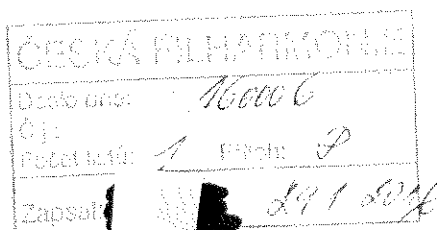 ČESKÁ FILHARMONIE
Došlo dne: 160006
Č.j.:
Počet listů: 1 Příloh:
Zapsal: 29 1 2016